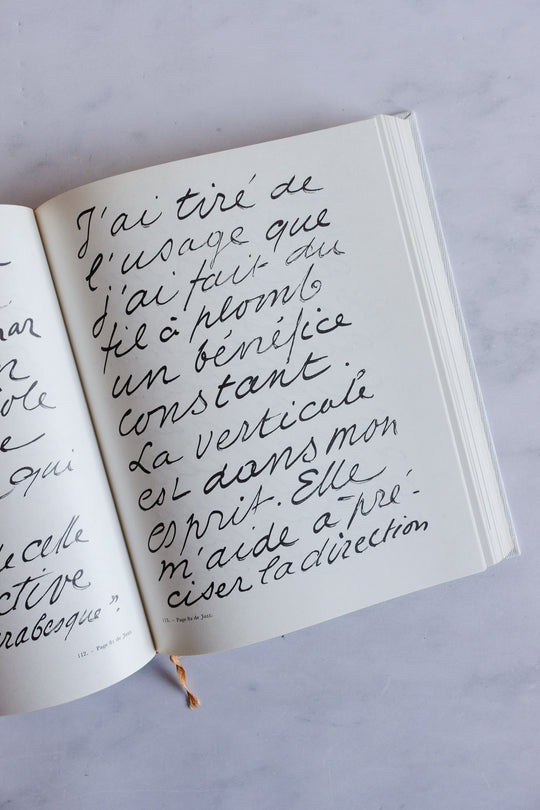 qui
de celle
ctive
rabesque".
112. - Page 81 de Jazz.
J'ai tiré de
l'usage que
j'ai fait du
fil à plomb
un bénéfice
constant.
La verticale
est dans mon
esprit. Elle
m'aide à pré-
ciser la direction
113. - Page 82 de Jazz.